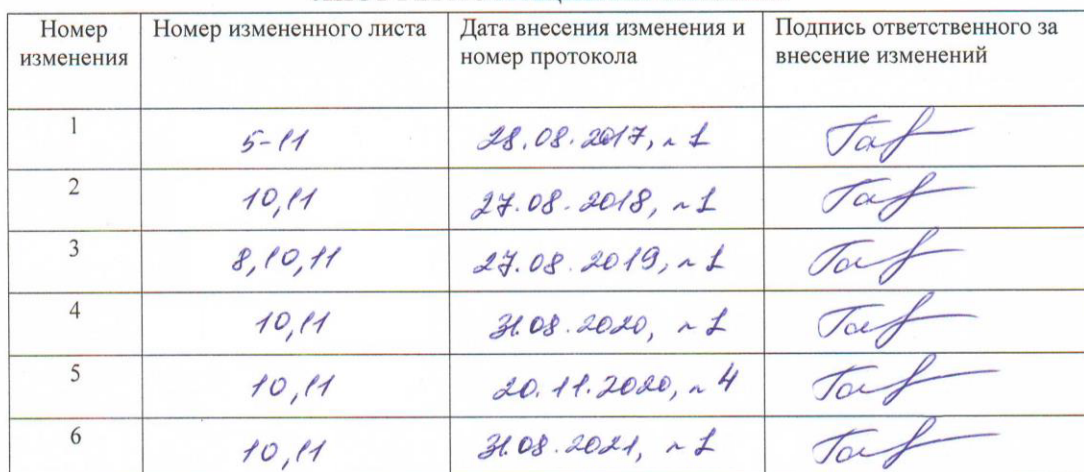 Номер изменения | Номер измененного листа | Дата внесения изменения и номер протокола | Подпись ответственного за внесение изменений
1 | 5-11 | 28.08.2017, ~ 1 | Гаf
2 | 10,11 | 27.08.2018, ~ 1
3 | 8,10,11 | 27.08.2019, ~ 1
4 | 10,11 | 31.08.2020, ~ 1
5 | 10,11 | 20.11.2020, ~ 4
6 | 10,11 | 31.08.2021, ~ 1